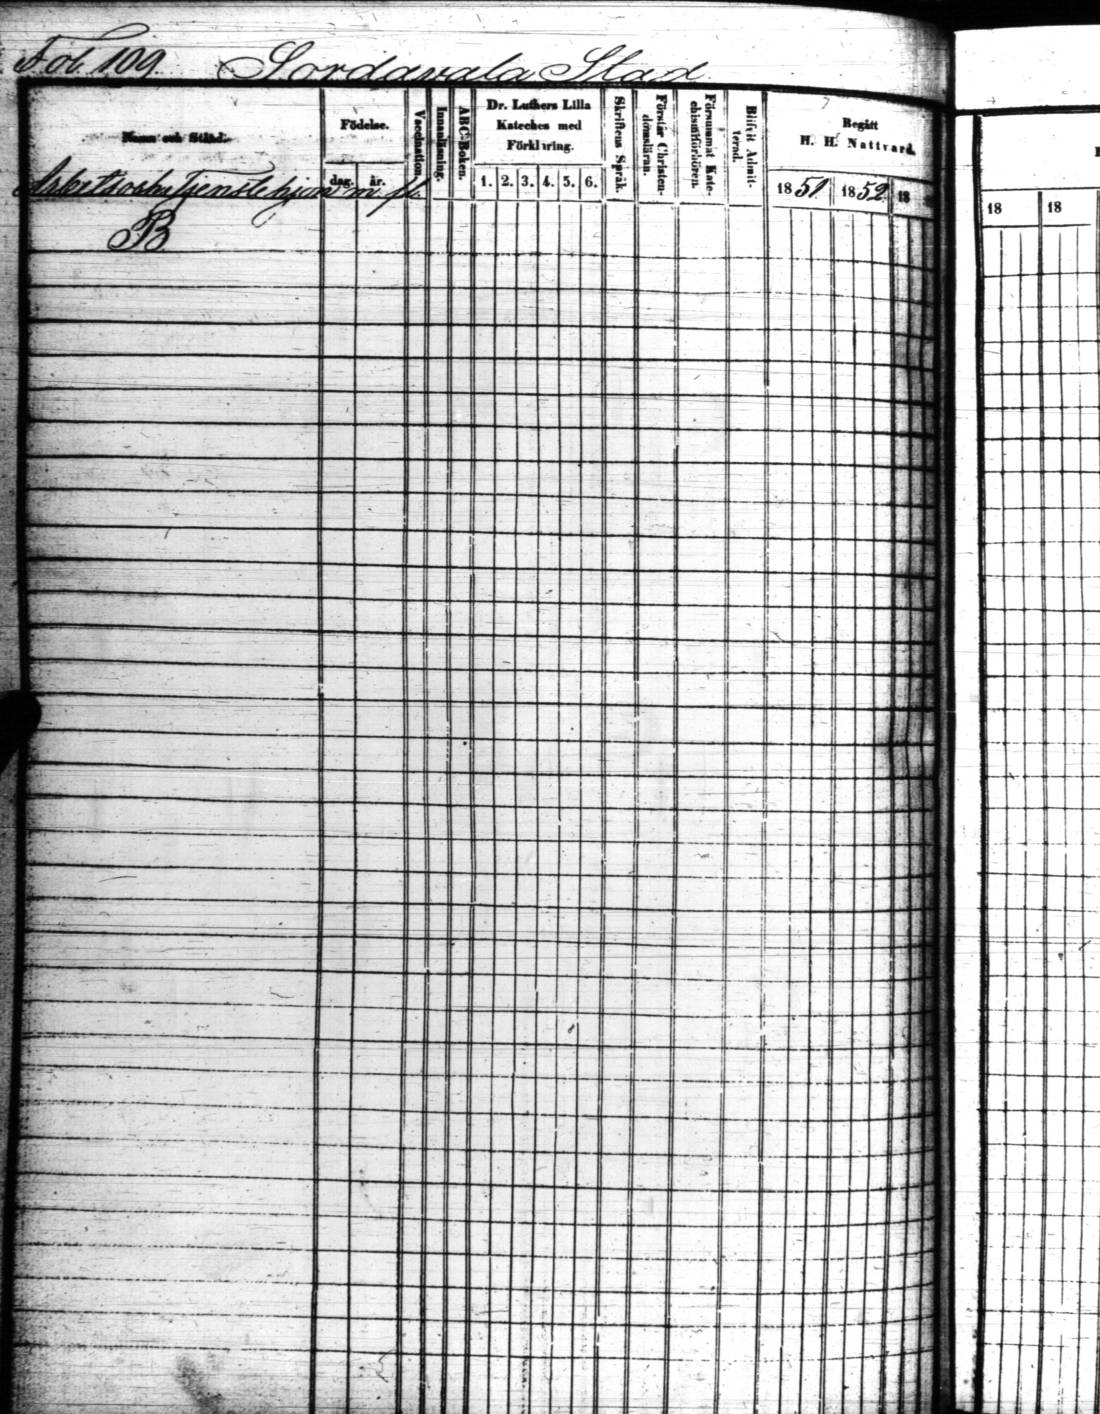 Fol. 109. Sordavala Stad
Namn och Stånd.
Födelse.
dag. år.
Vaccination.
Innanläsning.
ABC-Boken.
Dr. Luthers Lilla
Kateches med
Förklaring.
1. 2. 3. 4. 5. 6.
Skriftens Språk.
Förstår Christen-
domsläran.
Försummat Kate-
chismiförhören.
Blifvit Admit-
terad.
Begått
H. H. Nattvard.
1851 1852 18
Arbets och tjenstehjon m. fl.
B
18 18